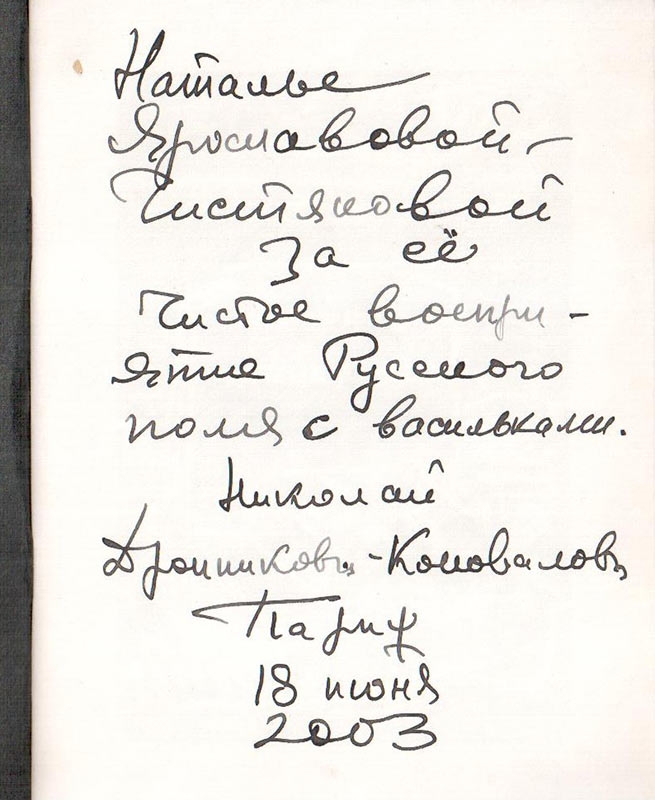 Наталье
Ярославовой-
Чистяковой
За её
Чистое воспри-
ятие Русского
поля с васильками.
Николай
Дронниковъ-Коноваловъ
Париж
18 июня
2003